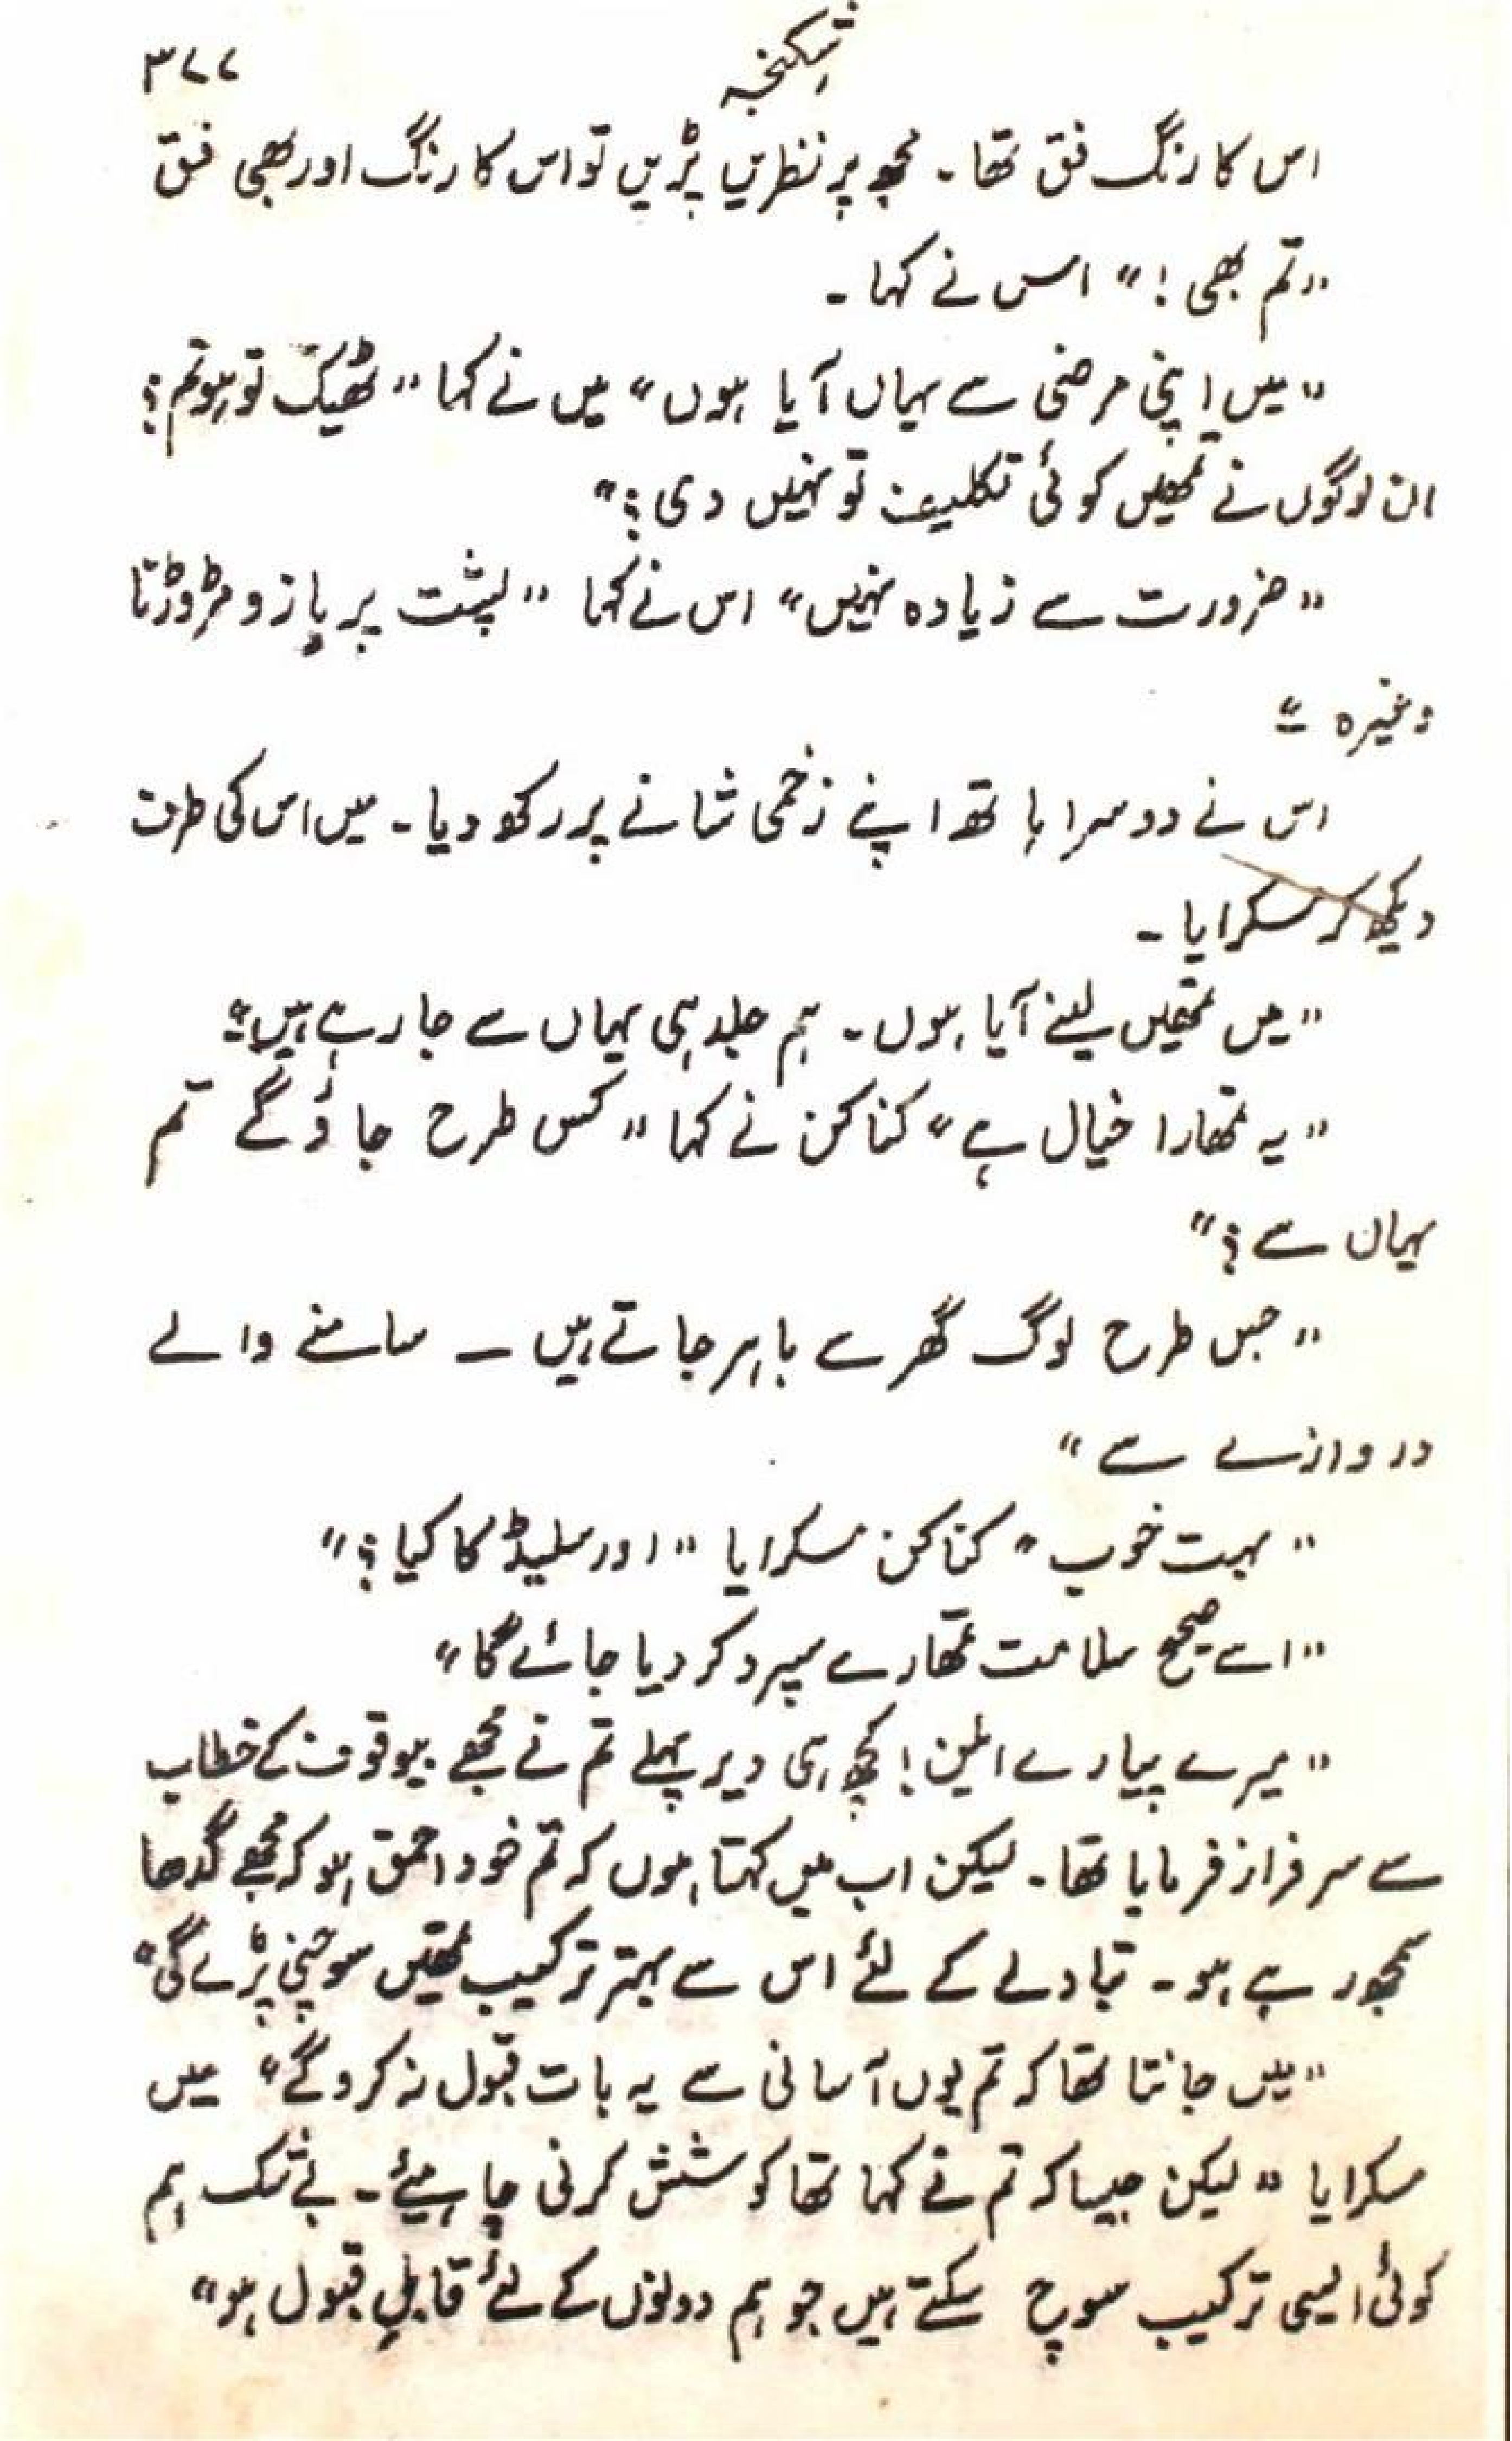 شکنجہ ۳۷۷
اس کا رنگ فق تھا۔ مجھ پر نظریں پڑیں تو اس کا رنگ اور بھی فق
"تم بھی!" اس نے کہا۔
"میں اپنی مرضی سے یہاں آیا ہوں" میں نے کہا "ٹھیک تو ہو تم؟
ان لوگوں نے تمھیں کوئی تکلیف تو نہیں دی؟"
"ضرورت سے زیادہ نہیں" اس نے کہا "پشت پر بازو مڑوڑنا
وغیرہ"
اس نے دوسرا ہاتھ اپنے زخمی شانے پر رکھ دیا۔ میں اس کی طرف
دیکھ کر مسکرایا۔
"میں تمھیں لینے آیا ہوں۔ ہم جلد ہی یہاں سے جا رہے ہیں"
"یہ تمھارا خیال ہے" کناکن نے کہا "کس طرح جاؤ گے تم
یہاں سے؟"
"جس طرح لوگ گھر سے باہر جاتے ہیں — سامنے والے
دروازے سے"
"بہت خوب" کناکن مسکرایا "اور سلیڈ کا کیا؟"
"اسے صحیح سلامت تمھارے سپرد کر دیا جائے گا"
"میرے پیارے ایلن! کچھ ہی دیر پہلے تم نے مجھے بیوقوف کے خطاب
سے سرفراز فرمایا تھا۔ لیکن اب میں کہتا ہوں کہ تم خود احمق ہو کہ مجھے گدھا
سمجھ رہے ہو۔ تبادلے کے لئے اس سے بہتر ترکیب تمھیں سوچنی پڑے گی"
"میں جانتا تھا کہ تم یوں آسانی سے یہ بات قبول نہ کرو گے" میں
مسکرایا "لیکن جیسا کہ تم نے کہا تھا کوشش کرنی چاہیئے۔ بے شک ہم
کوئی ایسی ترکیب سوچ سکتے ہیں جو ہم دونوں کے لئے قابلِ قبول ہو"